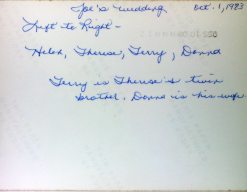 Joe's Wedding Oct. 1, 1983
Left to Right -
Helen, Therese, Terry, Donna
Terry is Therese's twin
brother. Donna is his wife.